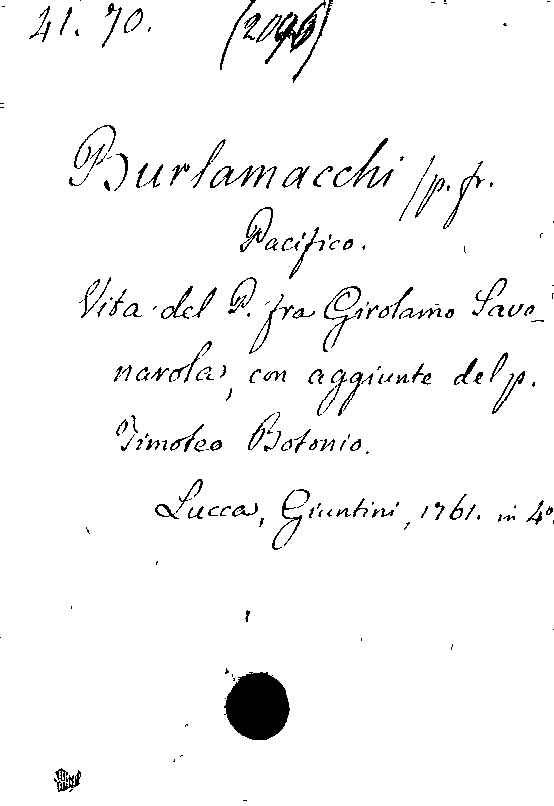 41. 70. (2096)
Burlamacchi /p. fr.
Pacifico.
Vita del P. fra Girolamo Savo-
narola, con aggiunte del p.
Timoteo Botonio.
Lucca, Giuntini, 1761. in 4º.